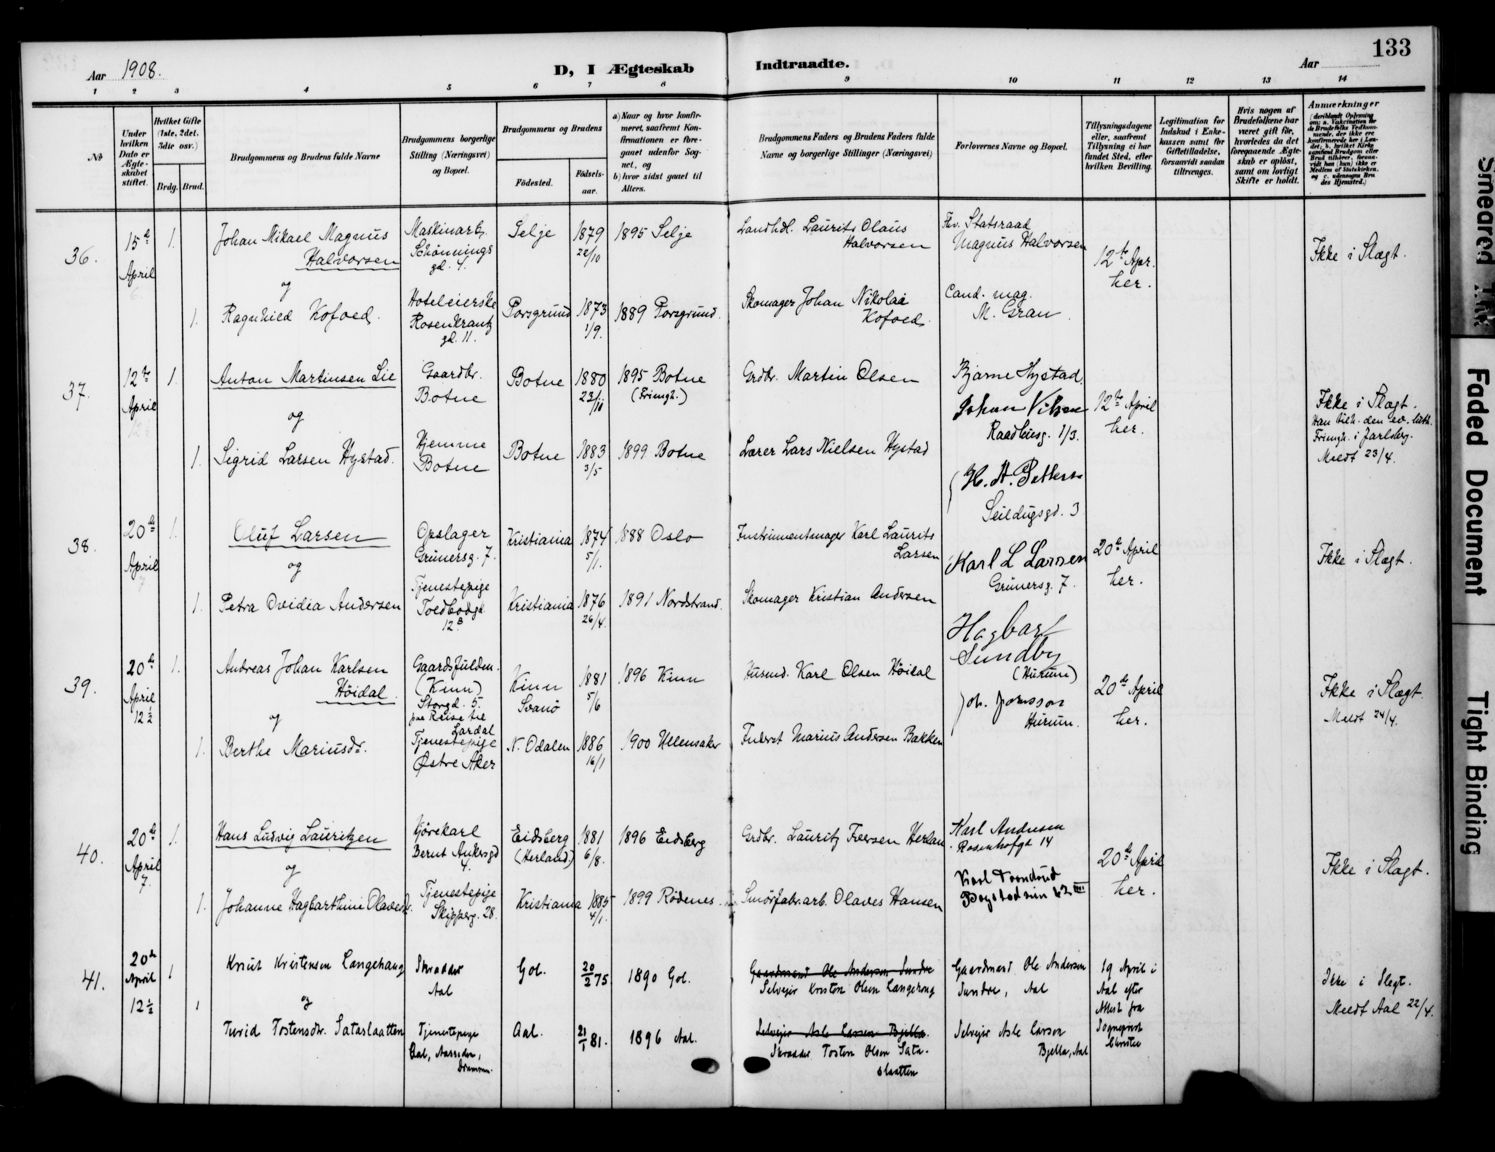 Aar 1908.
D, I Ægteskab Indtraadte.
Aar
133
1 2 3 4 5 6 7 8 9 10 11 12 13 14
No
Under hvilken Dato er Ægteskabet stiftet.
Hvilket Gifte (1ste, 2det, 3die osv.)
Brdg. Brud.
Brudgommens og Brudens fulde Navne
Brudgommens borgerlige Stilling (Næringsvei) og Bopæl.
Brudgommens og Brudens
Fødested.
Fødselsaar.
a) Naar og hvor konfirmeret, saafremt Konfirmationen er foregaaet udenfor Sognet, og
b) hvor sidst gaaet til Alters.
Brudgommens Faders og Brudens Faders fulde Navne og borgerlige Stillinger (Næringsvei)
Forlovernes Navne og Bopæl.
Tillysningsdagene eller, saafremt Tillysning ei har fundet Sted, efter hvilken Bevilling.
Legitimation for Indskud i Enkekassen samt for Giftetilladelse, forsaavidt saadan tiltrænges.
Hvis nogen af Brudefolkene har været gift før, hvorledes da det foregaaende Ægteskab er opløst, samt om lovligt Skifte er holdt.
Anmærkninger
36.
15de April
1.
Johan Mikael Magnus Halvorsen
Maskinarb.
Schønnings gd. 4.
Selje
1879 22/10
1895 Selje
Landhdl. Laurits Olaus Halvorsen
Fhv. Statsraad Magnus Halvorsen
12te Apr. her.
Ikke i Slægt.
og
1.
Ragnhild Kofoed.
Hoteleierske
Rosenkrantz gd. 11.
Porsgrund
1873 1/9.
1889 Porsgrund.
Skomager Johan Nikolai Kofoed.
Cand. mag. M. Gran.
37.
12te April
1.
Anton Martinsen Lie
Gaardbr. Botne
Botne
1880 23/10
1895 Botne (Frimgh.)
Grdbr. Martin Olsen
Bjarne Hystad.
Johan Nilsen
Raadhusg. 1/3.
12te April her.
Ikke i Slægt.
Frimgh. i Jarlsberg.
Meldt 23/4.
og
1.
Sigrid Larsen Hystad.
Hjemme Botne
Botne
1883 3/5
1899 Botne
Lærer Lars Nielsen Hystad
Seildugsgd. 3
38.
20de April
1.
Oluf Larsen
Opslager
Grünersg. 7.
Kristiania
1874 5/1.
1888 Oslo
Instrumentmager Karl Laurits Larsen
Karl L Larsen
Grünersg. 7
20de April her.
Ikke i Slægt.
og
1.
Petra Ovidia Andersen
Tjenestepige
Toldbodgd. 12 B
Kristiania
1876 26/4.
1891 Nordstrand.
Skomager Kristian Andersen
Hagbart Sundby
(Hurum)
39.
20de April 12½
1.
Andreas Johan Karlsen Høidal.
Gaardsfuldm. (Kinn)
Storgd. 5.
paa Reise til Lærdal
Kinn Svanø
1881 5/6
1896 Kinn
Husmd. Karl Olsen Høidal
Joh. Jonsson
Hurum.
20de April her.
Ikke i Slægt.
Meldt 24/4.
og
1.
Berthe Mariusdr.
Tjenestepige
Østre Aker
N. Odalen
1886 16/1
1900 Ullensaker
Inderst Marius Andersen Bakken
40.
20de April 7.
1.
Hans Ludvig Lauritzen
Kjørekarl
Bernt Ankersgd 4.
Eidsberg (Herland)
1881 6/8.
1896 Eidsberg
Grdbr. Lauritz Iversen Herland
Karl Andersen
Rosenhofgt 14
20de April her.
Ikke i Slægt.
og
1.
Johanne Hagbarthine Olavesd.
Tjenestepige
Skipperg. 28.
Kristiania
1885 4/1.
1899 Rødenes.
Smørfabr.arb. Olaves Hansen
41.
20de April 12½
1
Knut Kristensen Langehaug
Skrædder Aal
Gol.
20/2 75.
1890 Gol.
Gaardmand Ole Andersen Sundre
Selveier Kristen Olsen Langehaug
Gaardmand Ole Andersen Sundre, Aal
19 April i Aal efter Attest fra Sogneprest
Ikke i Slegt.
Meldt Aal 22/4.
og
1
Turid Tostensdtr. Sataslaatten
Tjenestepige
Aal.
21/1 81.
1896 Aal.
Selveier Asle Larsen Bjella.
Skrædder Tosten Olsen Sataslaatten
Selveier Asle Larsen Bjella, Aal
Smeared Ink
Faded Document
Tight Binding